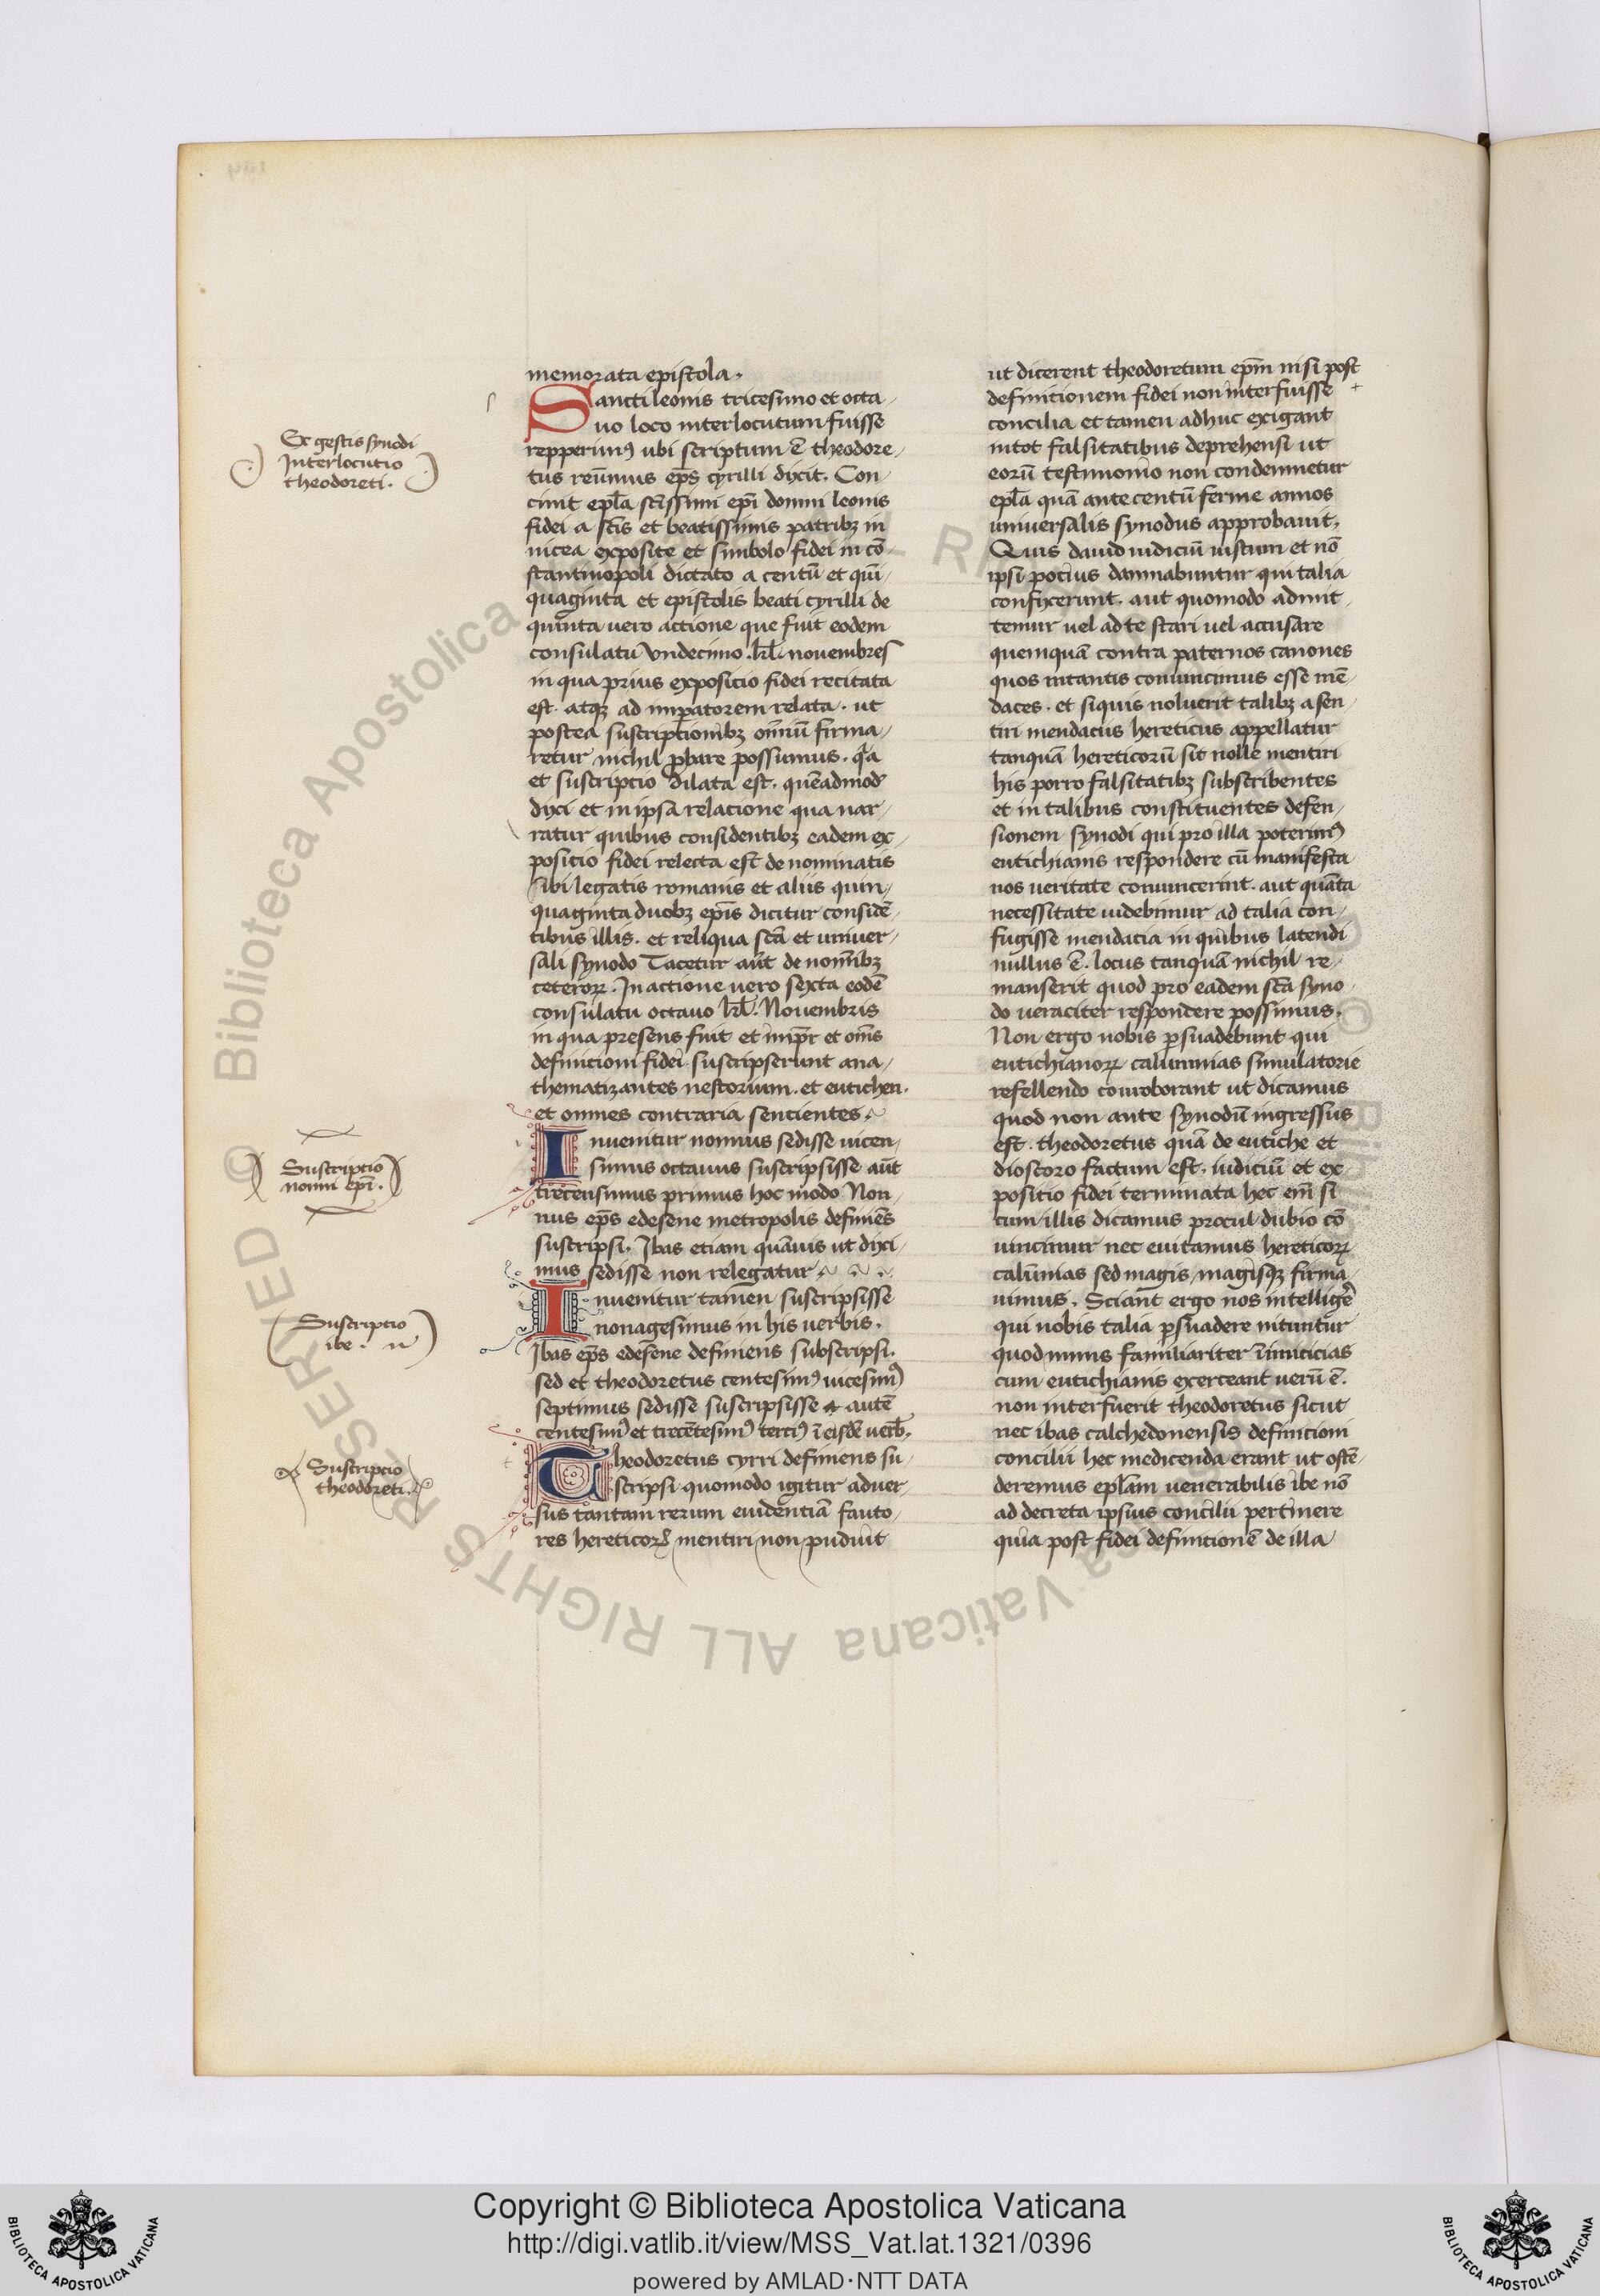 memorata epistola.
Sancti leonis tricesimo et octa
uo loco interlocutum fuisse
repperimꝰ ubi scriptum ē theodore
tus reūmus ep̄s cyrilli dixit. Con
cinit epl̄a sc̄issimi ep̄i domni leonis
fidei a sc̄is et beatissimis patribꝫ in
nicea exposite et simbolo fidei in cō
stantinopoli dictato a centū et quī
quaginta et epistolis beati cyrilli de
quinta uero actione que fuit eodem
consulatu vndecimo .kl̄. nouembres
in qua prius exposicio fidei recitata
est. atqꝫ ad imp̄atorem relata. ut
postea suscriptionibꝫ om̄iū firma
retur nichil ꝓbare possumus. qͣa
et suscriptio dilata est. quēadmod̄
dixi et in ipsa relacione qua nar
ratur quibus considentibꝫ eadem ex
positio fidei relecta est de nominatis
sibi legatis romanis et aliis quin
quaginta duobꝫ ep̄is dicitur considē
tibus illis. et reliqua sc̄a et uniuer
sali synodo Tacetur aūt de nom̄ibꝫ
ceteroꝝ. In actione uero sexta eodē
consulatu octauo kl̄. Nouembris
in qua presens fuit et imp̄r et om̄s
definitioni fidei suscripserunt ana
thematizantes nestorium. et eutichen.
et omnes contraria sentientes.
Inuenitur nonnus sedisse uicen
simus octauus suscripsisse aūt
trecensimus primus hoc modo Non
nus ep̄s edesene metropolis definiēs
suscripsi. Ibas etiam quāuis ut dixi
mus sedisse non relegatur
Inuenitur tamen suscripsisse
nonagesimus in his uerbis.
Ibas ep̄s edesene definiens subscripsi.
sed et theodoretus centesimꝰ uicesimꝰ
septimus sedisse suscripsisse autē
centesimꝰ et trecētesimꝰ terciꝰ ī eisdē uerb̄.
Theodoretus cyrri definiens su
scripsi quomodo igitur aduer
sus tantam rerum euidentiā fauto
res hereticoꝝ mentiri non puduit
Ex gestis synodi
Interlocutio
theodoreti.
Suscriptio
nonni ep̄i.
Suscriptio
ibe.
Suscriptio
theodoreti.
ut dicerent theodoretum ep̄m nisi post
definitionem fidei non interfuisse
concilia et tamen adhuc exigant
in tot falsitatibus deprehensi ut
eorū testimonio non condemnetur
epl̄a quā ante centū ferme annos
uniuersalis synodus approbauit.
Quis dauid iudiciū iustum et nō
ipsi pocius damnabuntur qui talia
confixerunt. aut quomodo admit
temur uel ad te stari uel accusare
quemquā contra paternos canones
quos in tantis conuincimus esse mē
daces. et siquis noluerit talibꝫ asen
tiri mendaciis hereticus appellatur
tanquā hereticorū sit nolle mentiri
his porro falsitatibꝫ subscribentes
et in talibus constituentes defen
sionem synodi qui pro illa poterimꝰ
eutichianis respondere cū manifesta
nos ueritate conuincerint. aut quāta
necessitate uidebimur ad talia con
fugisse mendacia in quibus latendi
nullus ē. locus tanquā nichil re
manserit quod pro eadem sc̄a syno
do ueraciter respondere possimus.
Non ergo nobis ꝑsuadebunt qui
eutichianoꝝ calumnias simulatorie
refellendo conroborant ut dicamus
quod non ante synodū ingressus
est. theodoretus quā de eutiche et
dioscoro factum est. iudiciū et ex
positio fidei terminata hec em̄ si
cum illis dicamus procul dubio cō
uincimur nec euitamus hereticoꝝ
calūnias sed magis magisqꝫ firma
uimus. Sciant ergo nos intelligē
qui nobis talia ꝑsuadere nituntur
quod nimis familiariter īimicicias
cum eutichianis exerceant uerū ē.
non interfuerit theodoretus sicut
nec ibas calchedonensis definitioni
concilii hec medicenda erant ut ostē
deremus epl̄am uenerabilis ibe nō
ad decreta ipsius concilii pertinere
quia post fidei definitionē de illa
© Biblioteca Apostolica Vaticana ALL RIGHTS RESERVED
Copyright © Biblioteca Apostolica Vaticana
http://digi.vatlib.it/view/MSS_Vat.lat.1321/0396
powered by AMLAD·NTT DATA
BIBLIOTECA APOSTOLICA VATICANA
BIBLIOTECA APOSTOLICA VATICANA